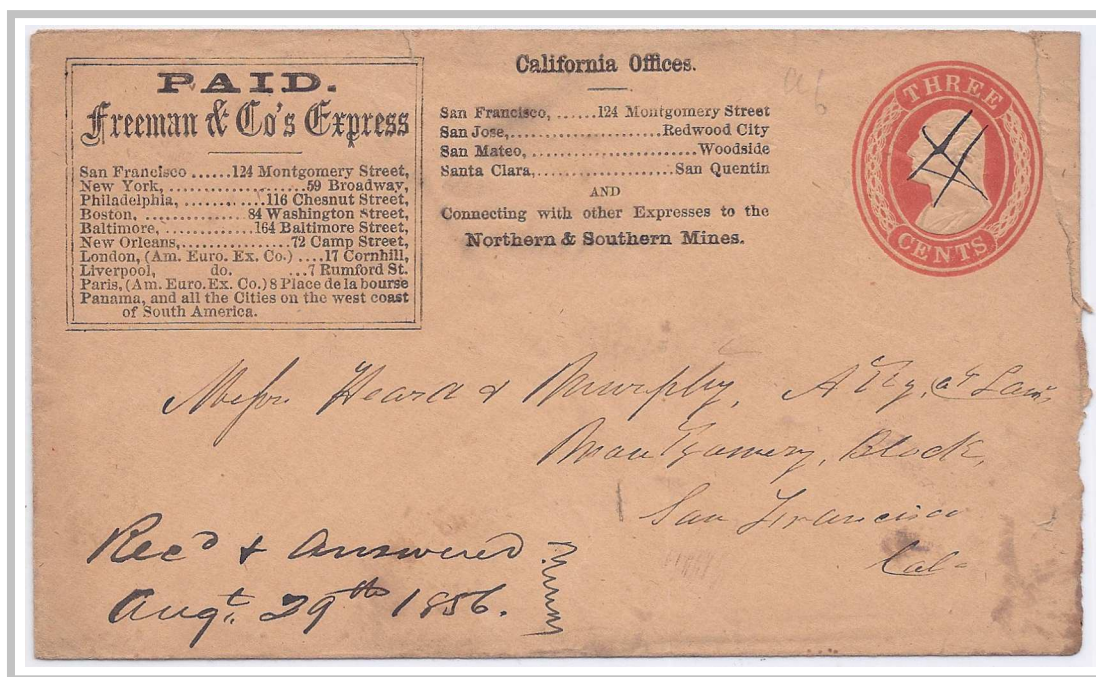 PAID.
Freeman & Co's Express
San Francisco ......124 Montgomery Street,
New York, ...................59 Broadway,
Philadelphia, ............116 Chesnut Street,
Boston, ............84 Washington Street,
Baltimore, ..........164 Baltimore Street,
New Orleans,..............72 Camp Street,
London, (Am. Euro. Ex. Co.) ....17 Cornhill,
Liverpool, do. ...7 Rumford St.
Paris, (Am. Euro. Ex. Co.) 8 Place de la bourse
Panama, and all the Cities on the west coast
of South America.
California Offices.
San Francisco, ......124 Montgomery Street
San Jose,......................Redwood City
San Mateo, ........................Woodside
Santa Clara,....................San Quentin
AND
Connecting with other Expresses to the
Northern & Southern Mines.
THREE
CENTS
Messrs. Heard & Murphy, Atty. at Law,
Montgomery, Block,
San Francisco
Cal-
Rec'd & Answered
Augt. 29th 1856.